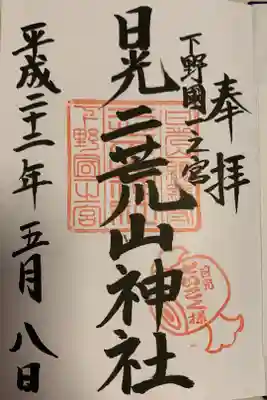 奉拝
下野國一之宮
日光二荒山神社
平成二十二年五月八日
日光
だいこく様